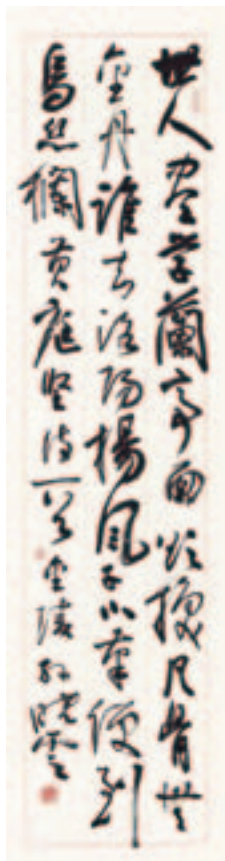 世人盡學蘭亭面欲換凡骨無
金丹誰知洛陽楊風子下筆便到
烏絲欄黄庭堅詩一首金陵孫曉雲